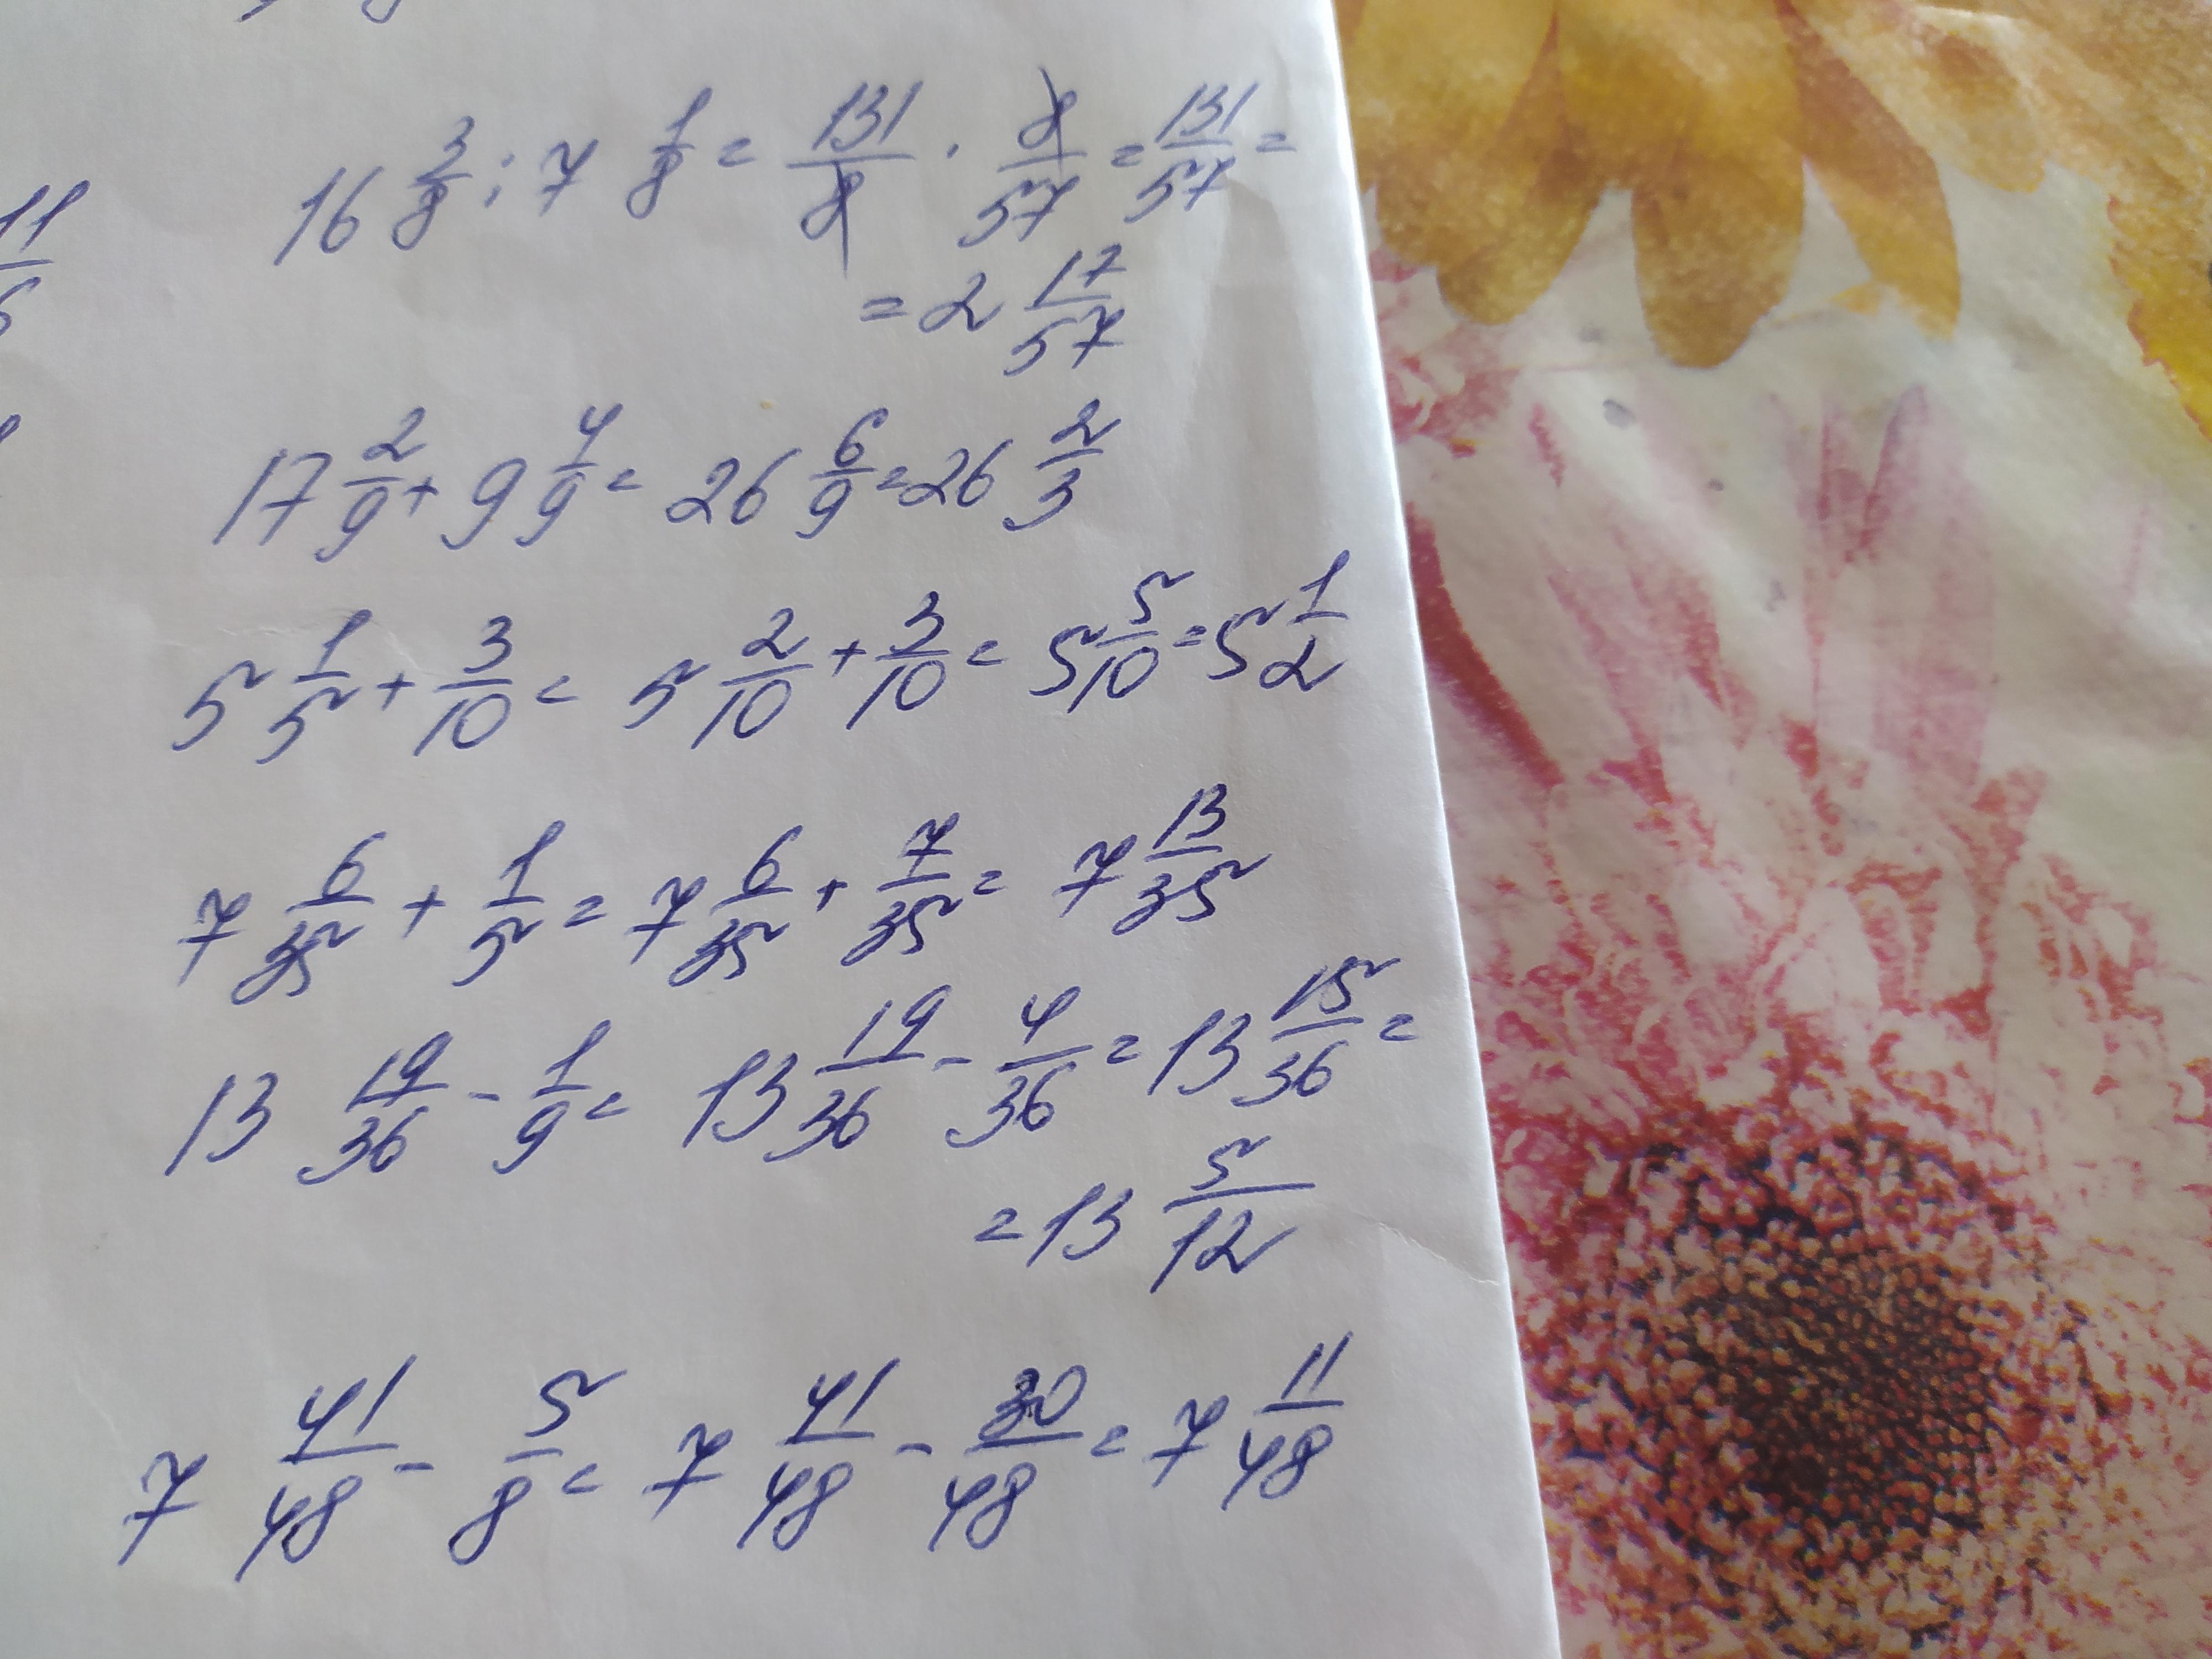 11/
16 3/8 : 7 1/8 = 131/8 · 8/57 = 131/57 =
= 2 17/57
17 2/9 + 9 4/9 = 26 6/9 = 26 2/3
5 1/5 + 3/10 = 5 2/10 + 3/10 = 5 5/10 = 5 1/2
7 6/35 + 1/5 = 7 6/35 + 7/35 = 7 13/35
13 19/36 - 1/9 = 13 19/36 - 4/36 = 13 15/36 =
= 13 5/12
7 41/48 - 5/8 = 7 41/48 - 30/48 = 7 11/48